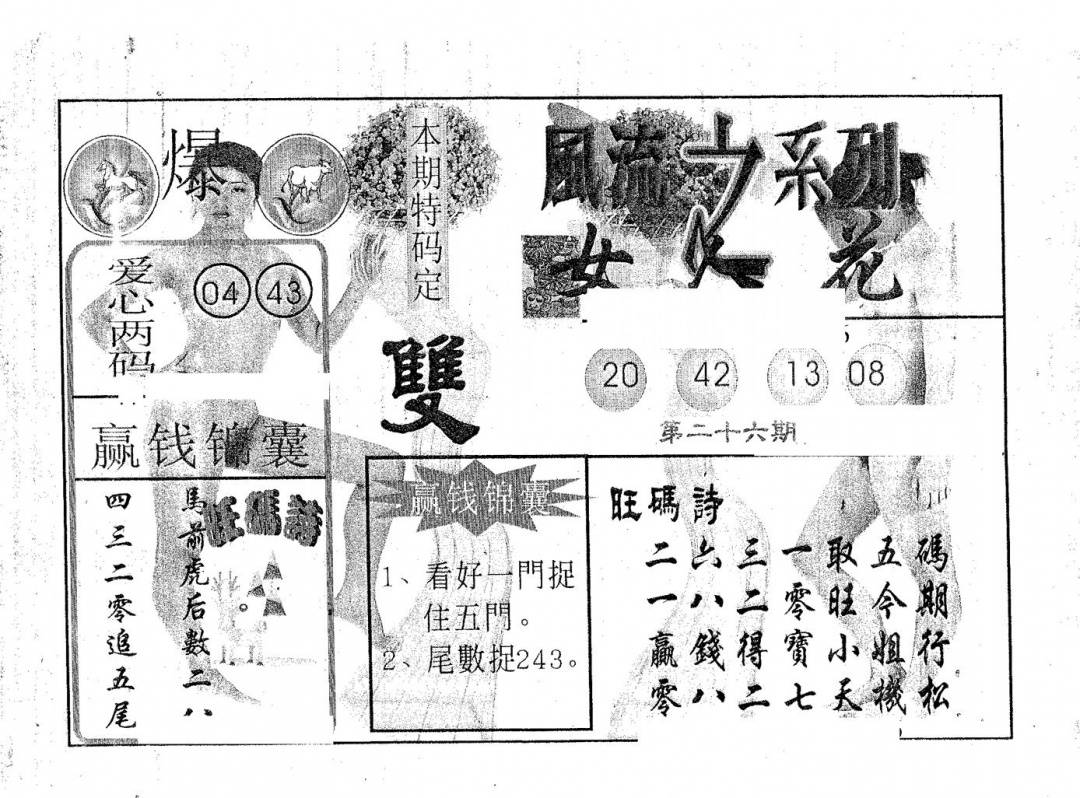 爆
本期特码定
雙
風流之系列
女人花
爱心两码
04 43
20 42 13 08
第二十六期
赢钱锦囊
旺碼詩
馬前虎后數二八
四三二零追五尾
赢钱锦囊
1、看好一門捉
住五門。
2、尾數捉243。
旺碼詩
碼期行松
五今姐機
取旺小天
一零寶七
三二得二
六八錢八
二一贏零